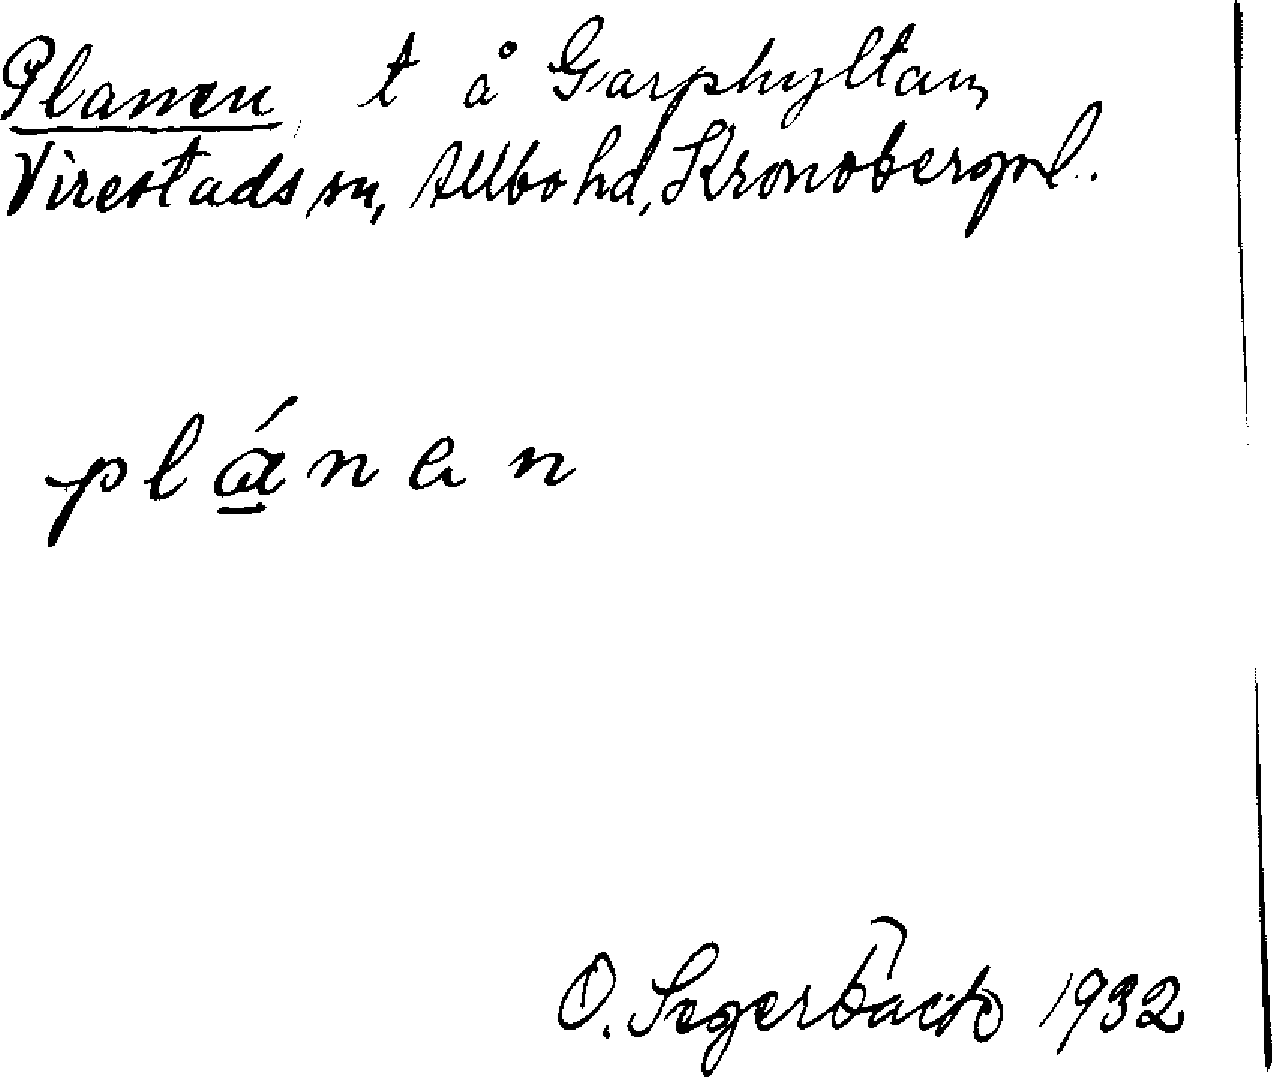 Planen t å Garphyltan,
Virestads sn, Allbo hd, Kronobergs l.
plánen
O. Segerbäck 1932